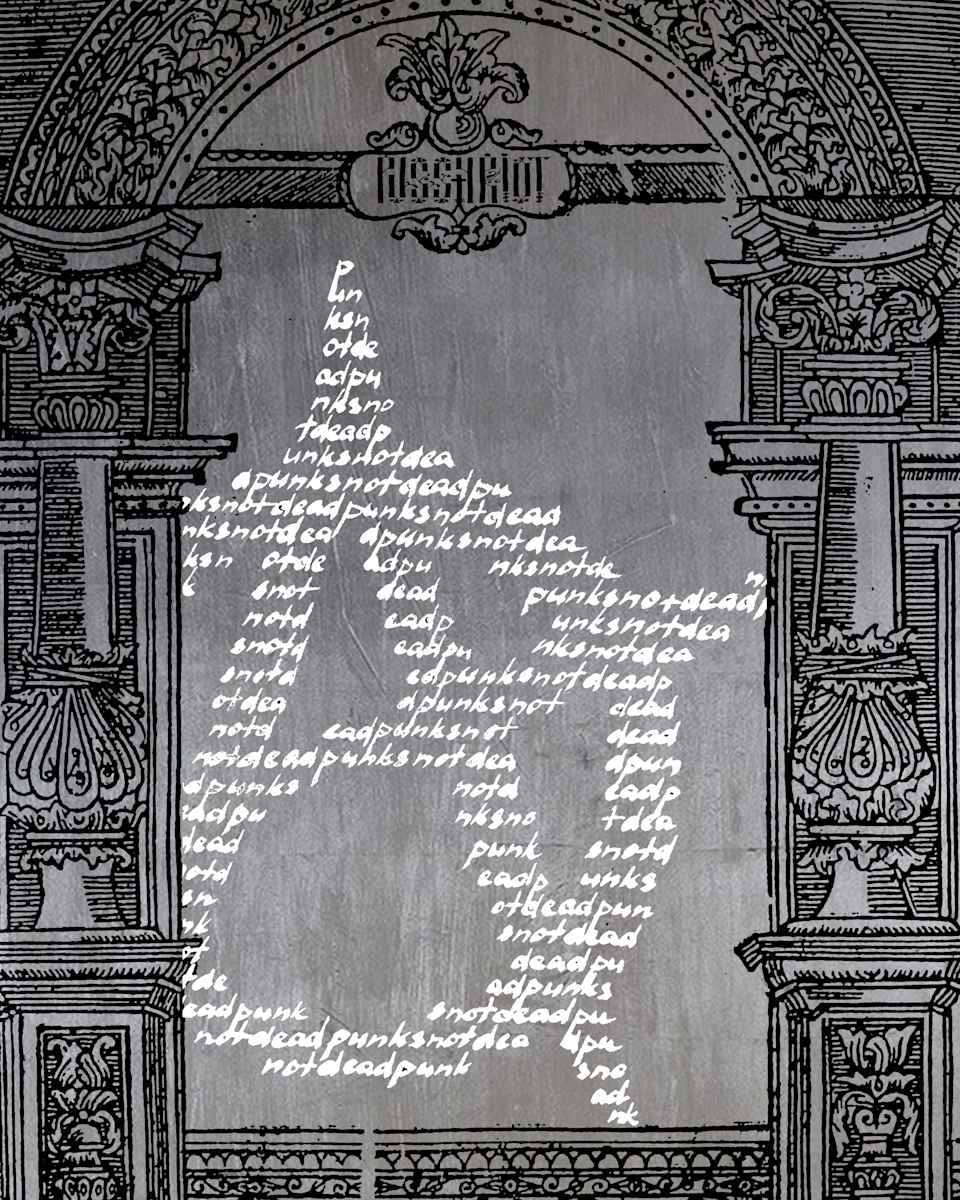 p
un
ksn
otde
adpu
nksno
tdeadp
unksnotdea
dpunksnotdeadpu
nksnotdeadpunksnotdead
nksnotdea dpunksnotdea
ksn otde adpu nksnotde
snot dead punksnotdeadp
notd eadp unksnotdea
snotd eadpu nksnotdea
snotd edpunksnotdeadp
otdea dpunksnot dead
notd eadpunksnot dead
notdeadpunksnotdea dpun
dpunks notd eadp
eadpu nksno tdea
dead punk snotd
otd eadp unks
sn otdeadpun
nk snotdead
ot deadpu
tde adpunks
eadpunk snotdeadpu
notdeadpunksnotdea dpu
notdeadpunk sno
ad
nk